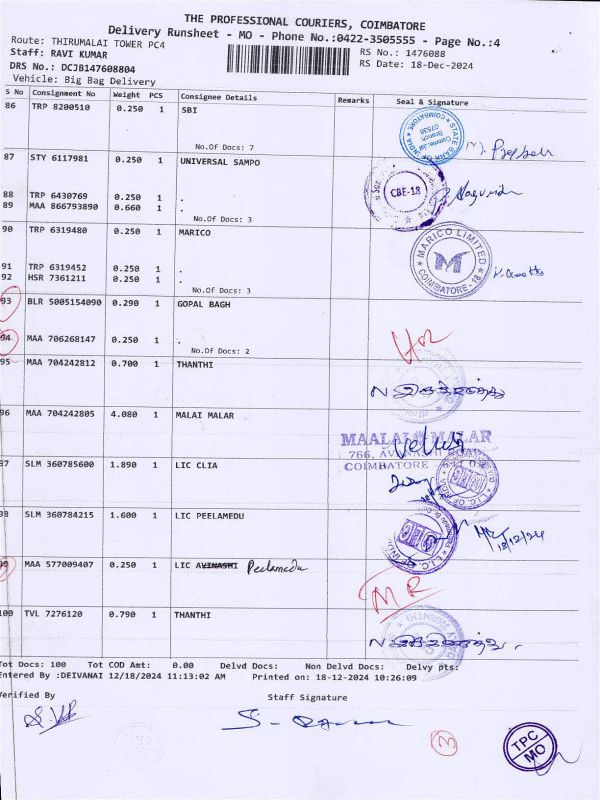 THE PROFESSIONAL COURIERS, COIMBATORE
Delivery Runsheet - MO - Phone No.:0422-3505555 - Page No.:4
Route: THIRUMALAI TOWER PC4
RS No.: 1476088
Staff: RAVI KUMAR
RS Date: 18-Dec-2024
DRS No.: DCJB147608804
Vehicle: Big Bag Delivery
S No Consignment No Weight PCS Consignee Details Remarks Seal & Signature
86 TRP 8200510 0.250 1 SBI
STATE BANK OF INDIA
Commercial Branch
07536
COIMBATORE
No.Of Docs: 7
87 STY 6117981 0.250 1 UNIVERSAL SAMPO
CBE-18
88 TRP 6430769 0.250 1 .
89 MAA 866793890 0.660 1 .
No.Of Docs: 3
90 TRP 6319480 0.250 1 MARICO
MARICO LIMITED
COIMBATORE - 18
91 TRP 6319452 0.250 1 .
92 HSR 7361211 0.250 1 .
No.Of Docs: 3
93 BLR 5005154090 0.290 1 GOPAL BAGH
94 MAA 706268147 0.250 1 .
No.Of Docs: 2
95 MAA 704242812 0.700 1 THANTHI
96 MAA 704242805 4.080 1 MALAI MALAR
MAALAI MALAR
766, AVANASHI ROAD
COIMBATORE
97 SLM 360785600 1.890 1 LIC CLIA
98 SLM 360784215 1.600 1 LIC PEELAMEDU
18/12/24
99 MAA 577009407 0.250 1 LIC AVINASHI Peelamedu
MR
100 TVL 7276120 0.790 1 THANTHI
Tot Docs: 100 Tot COD Amt: 0.00 Delvd Docs: Non Delvd Docs: Delvy pts:
Entered By :DEIVANAI 12/18/2024 11:13:02 AM Printed on: 18-12-2024 10:26:09
Verified By Staff Signature
TPC
MO